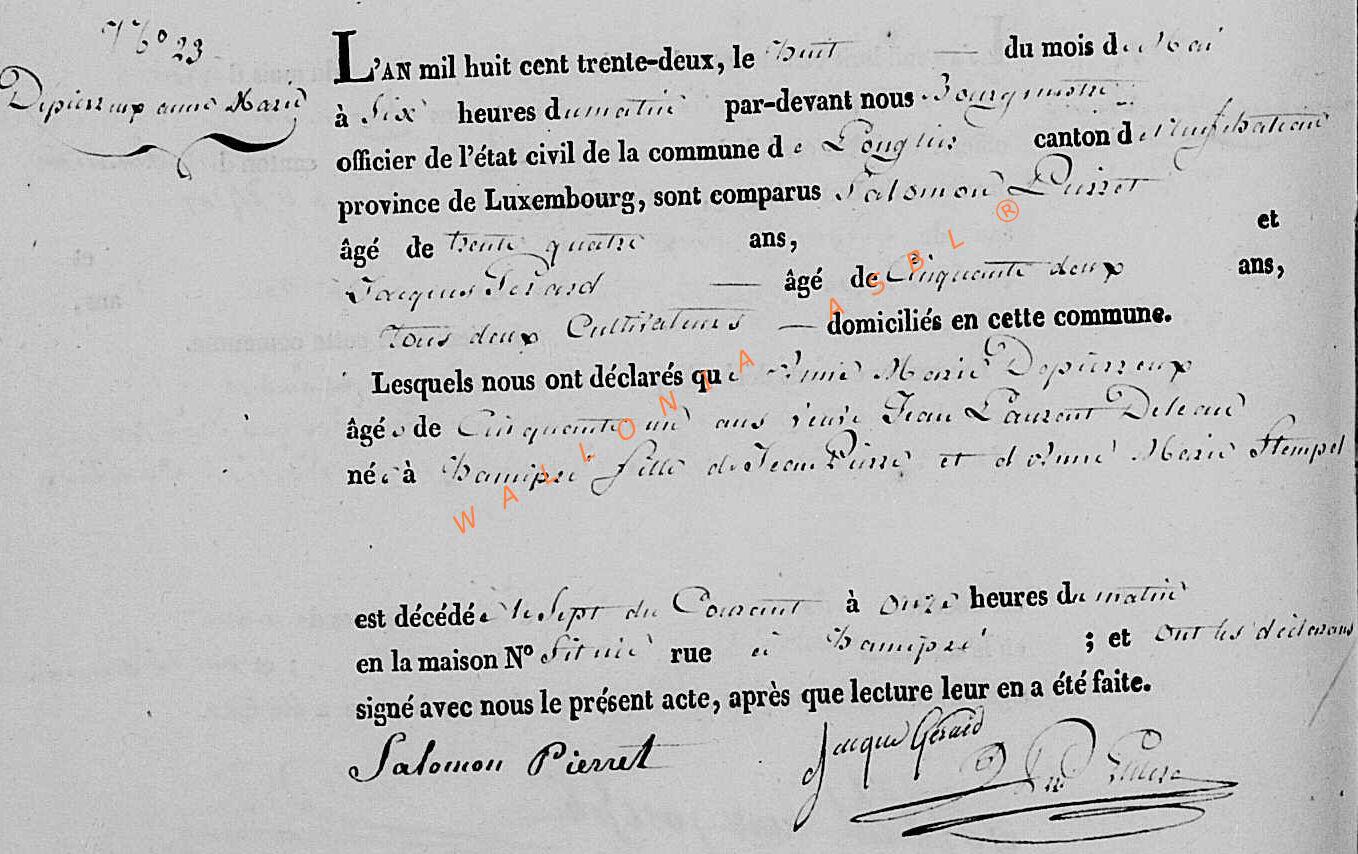 N° 23
Depierreux anne Marie
L'AN mil huit cent trente-deux, le huit du mois de Mai
à Six heures du matin par-devant nous Bourgmestre
officier de l'état civil de la commune de Longlier canton de Neufchateau
province de Luxembourg, sont comparus Salomon Pierret
âgé de trente quatre ans, et
Jacques Gerard âgé de Cinquante deux ans,
tous deux Cultivateurs domiciliés en cette commune.
Lesquels nous ont déclarés que Anne Marie Depierreux
âgée de Cinquante un ans veuve Jean Laurent
née à hamipré fille de Jean Pierre et d'Anne Marie Stempel
est décédée le Sept du Courant à onze heures du matin
en la maison N° Située rue à hamipré ; et ont les déclarans
signé avec nous le présent acte, après que lecture leur en a été faite.
Salomon Pierret
Jacque Gérard
WALLONIA ASBL ®